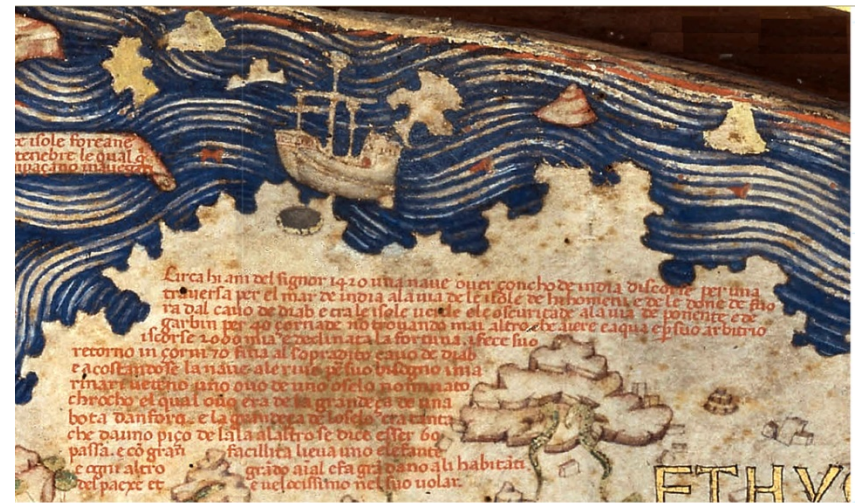 e isole foreane
tenebre le qual q
Circa hi ani del signor 1420 una naue ouer çoncho de india discorse per una
trauersa per el mar de india ala uia de le isole de hi homeni e de le done de fuo
ra dal cauo de diab e tra le isole uerde e le oscuritade ala uia de ponente e de
garbin per 40 çornade no trouando mai altro che aiere e aqua e p suo arbitrio
iscorse 2000 mia e declinata la fortuna i fece suo
retorno in çorni 70 fina al sopradito cauo de diab
e acostandose la naue ale riue p suo bisogno i ma
rinari uedeno uno ouo de uno oselo nominato
chrocho el qual ouo era de la grandeça de una
bota danfora e la grandeça de loselo era tanta
che da uno piço de lala alaltro se dice esser 60
passa e cō gran facillita lieua uno elefante
e ogni altro grādo aīal e fa grā dano ali habitāti
del paexe et e uelocissimo nel suo uolar.
ETHYO